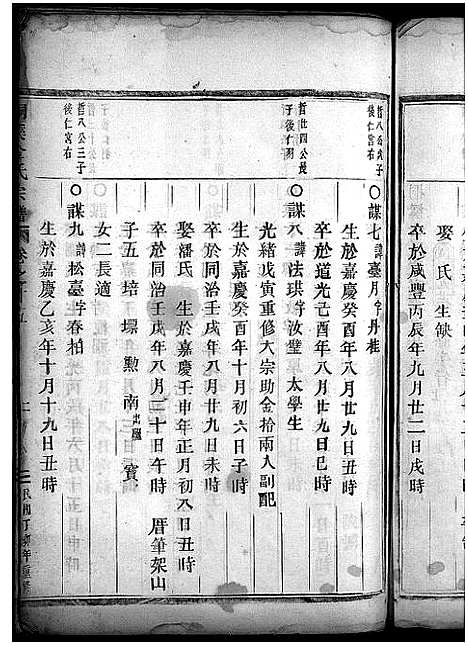 娶 氏 生缺
卒於咸豐丙辰年九月廿二日戌時
哲八公次子
後仁宮右
○謀七 諱臺月字丹桂
生於嘉慶癸酉年八月廿九日丑時
卒於道光己酉年八月廿九日巳時
哲廿四公長
子後仁
○謀八 諱法珙字汝璧 太學生
光緒戊寅重修大宗助金拾兩入副配
生於嘉慶癸酉年十月初六日子時
卒於同治壬戌年八月廿九日未時
娶潘氏 生於嘉慶壬申年正月初八日丑時
卒於同治壬戌年八月二十日午時 厝筆架山
子五 培 壜 勲 南 出繼 寳
女二長適
哲八公三子
後仁宮右
○謀九 諱松臺字春柏
生於嘉慶乙亥年十月十九日丑時
氏宗譜
民國丁